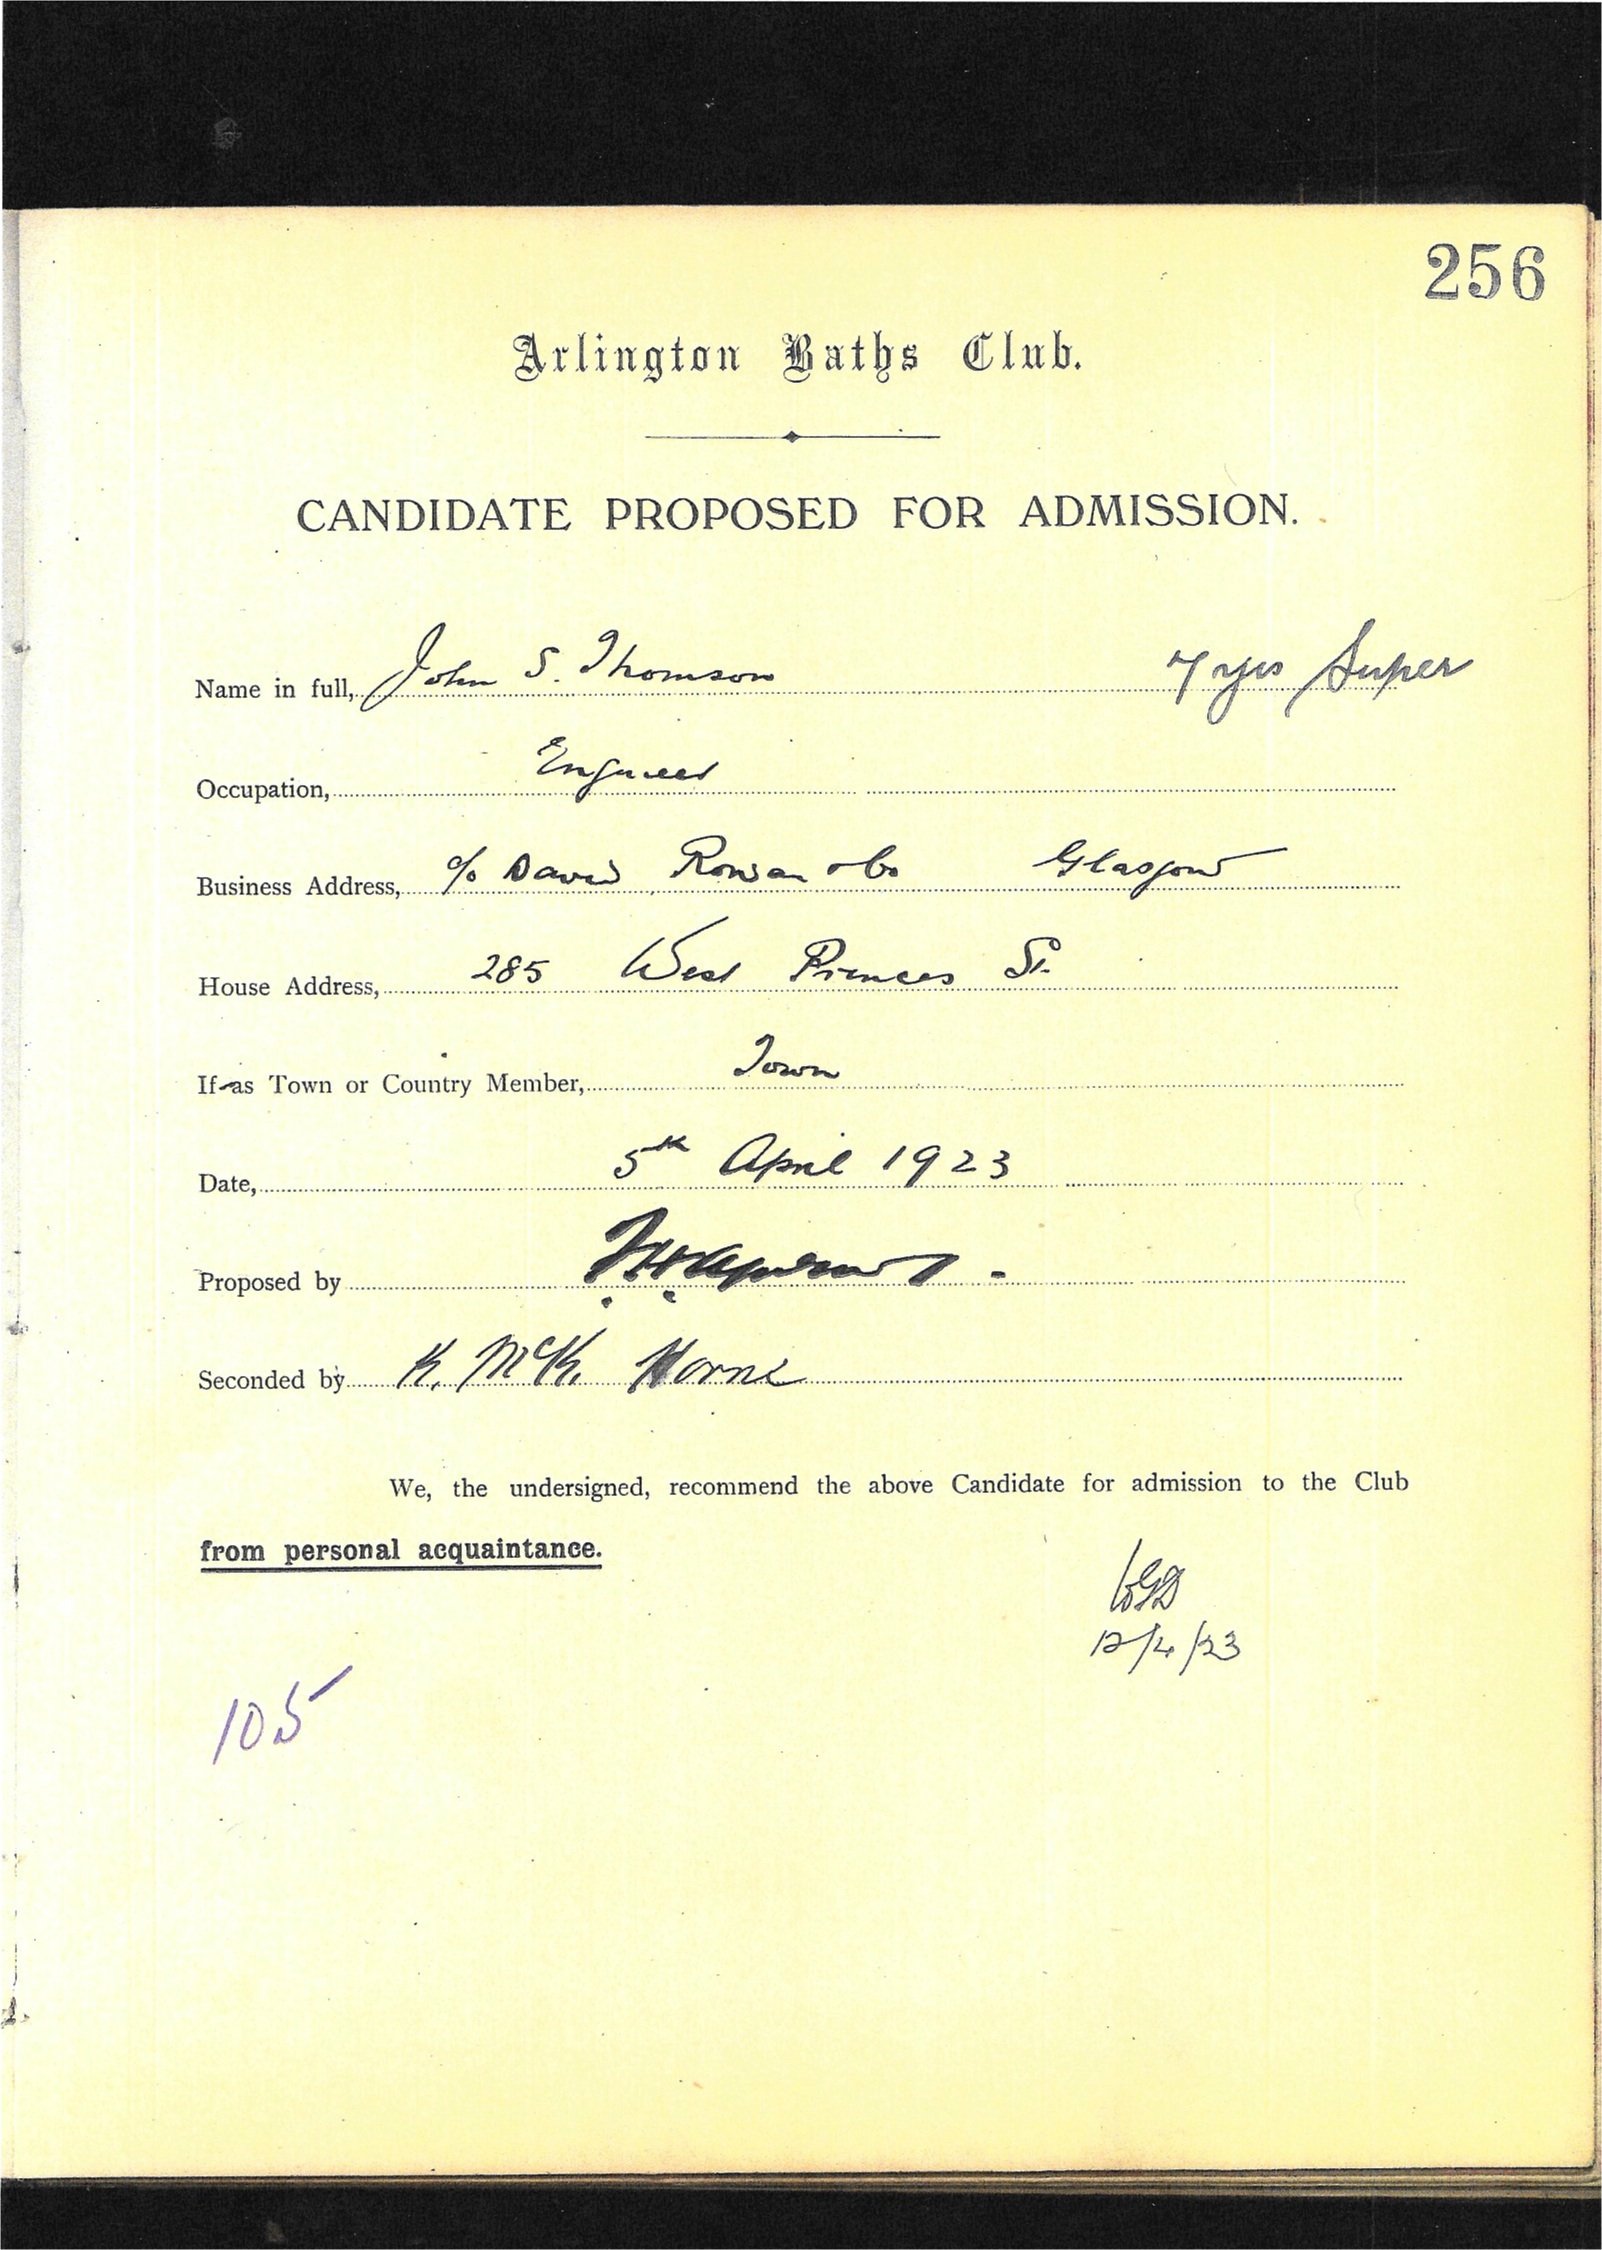 256
Arlington Baths Club.
CANDIDATE PROPOSED FOR ADMISSION.
Name in full, John S. Thomson 7 yrs Super
Occupation, Engineer
Business Address, c/o David Rowan & Co Glasgow
House Address, 285 West Princes St.
If as Town or Country Member, Town
Date, 5th April 1923
Proposed by
Seconded by K. McK. Horne
We, the undersigned, recommend the above Candidate for admission to the Club
from personal acquaintance.
12/4/23
105